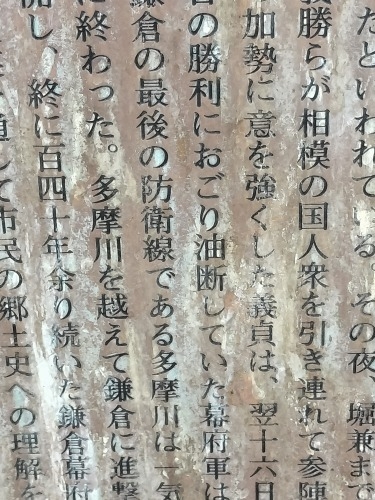 だといわれている。その夜、堀兼まで
義勝らが相模の国人衆を引き連れて参陣
加勢に意を強くした義貞は、翌十六日
の勝利におごり油断していた幕府軍は
鎌倉の最後の防衛線である多摩川は一気
に終わった。多摩川を越えて鎌倉に進撃
し、終に百四十年余り続いた鎌倉幕府
通して市民の郷土史への理解を